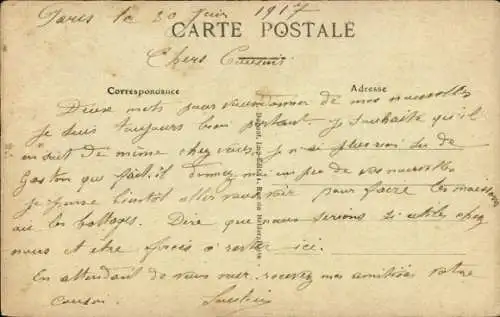 Paris le 20 Juin 1917
CARTE POSTALE
Chers Cousins
Correspondance
Adresse
Deux mots pour vous donner de mes nouvelles
je suis toujours bien portant. Je souhaite qu'il
en soit de même chez vous. je n'ai plus rien su de
Gaston que fait-il donnez moi un peu de vos nouvelles
je pense bientôt aller vous voir pour faire les moissons
ou les battages. Dire que nous serions si utiles chez
nous et être forcés à rester ici.
En attendant de vous voir recevez mes amitiés votre
cousin.